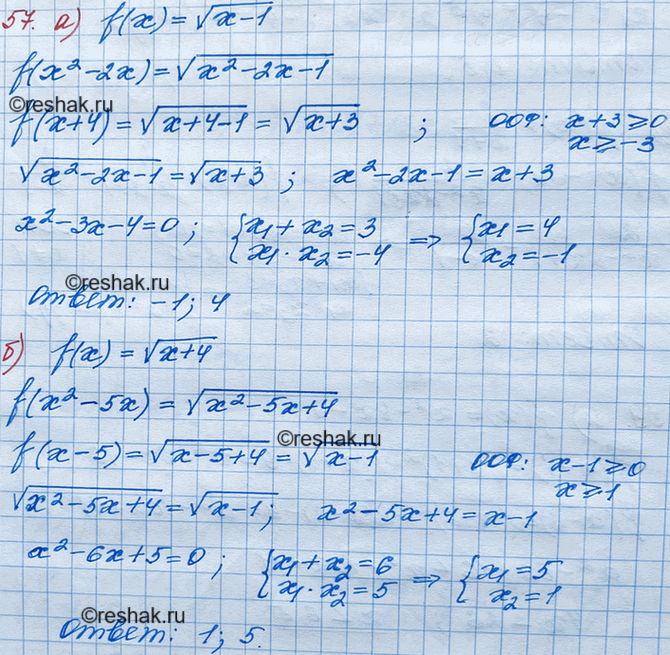 57. а) f(x) = √(x-1)
f(x²-2x) = √(x²-2x-1)
©reshak.ru
f(x+4) = √(x+4-1) = √(x+3) ; ООФ: x+3 ≥ 0
x ≥ -3
√(x²-2x-1) = √(x+3) ; x²-2x-1 = x+3
x²-3x-4=0 ; {x₁+x₂=3 x₁·x₂=-4 ⇒ {x₁=4 x₂=-1
©reshak.ru
ответ: -1; 4
б) f(x) = √(x+4)
f(x²-5x) = √(x²-5x+4)
©reshak.ru
f(x-5) = √(x-5+4) = √(x-1) ООФ: x-1 ≥ 0
x ≥ 1
√(x²-5x+4) = √(x-1) ; x²-5x+4 = x-1
x²-6x+5=0 ; {x₁+x₂=6 x₁·x₂=5 ⇒ {x₁=5 x₂=1
©reshak.ru
ответ: 1; 5.